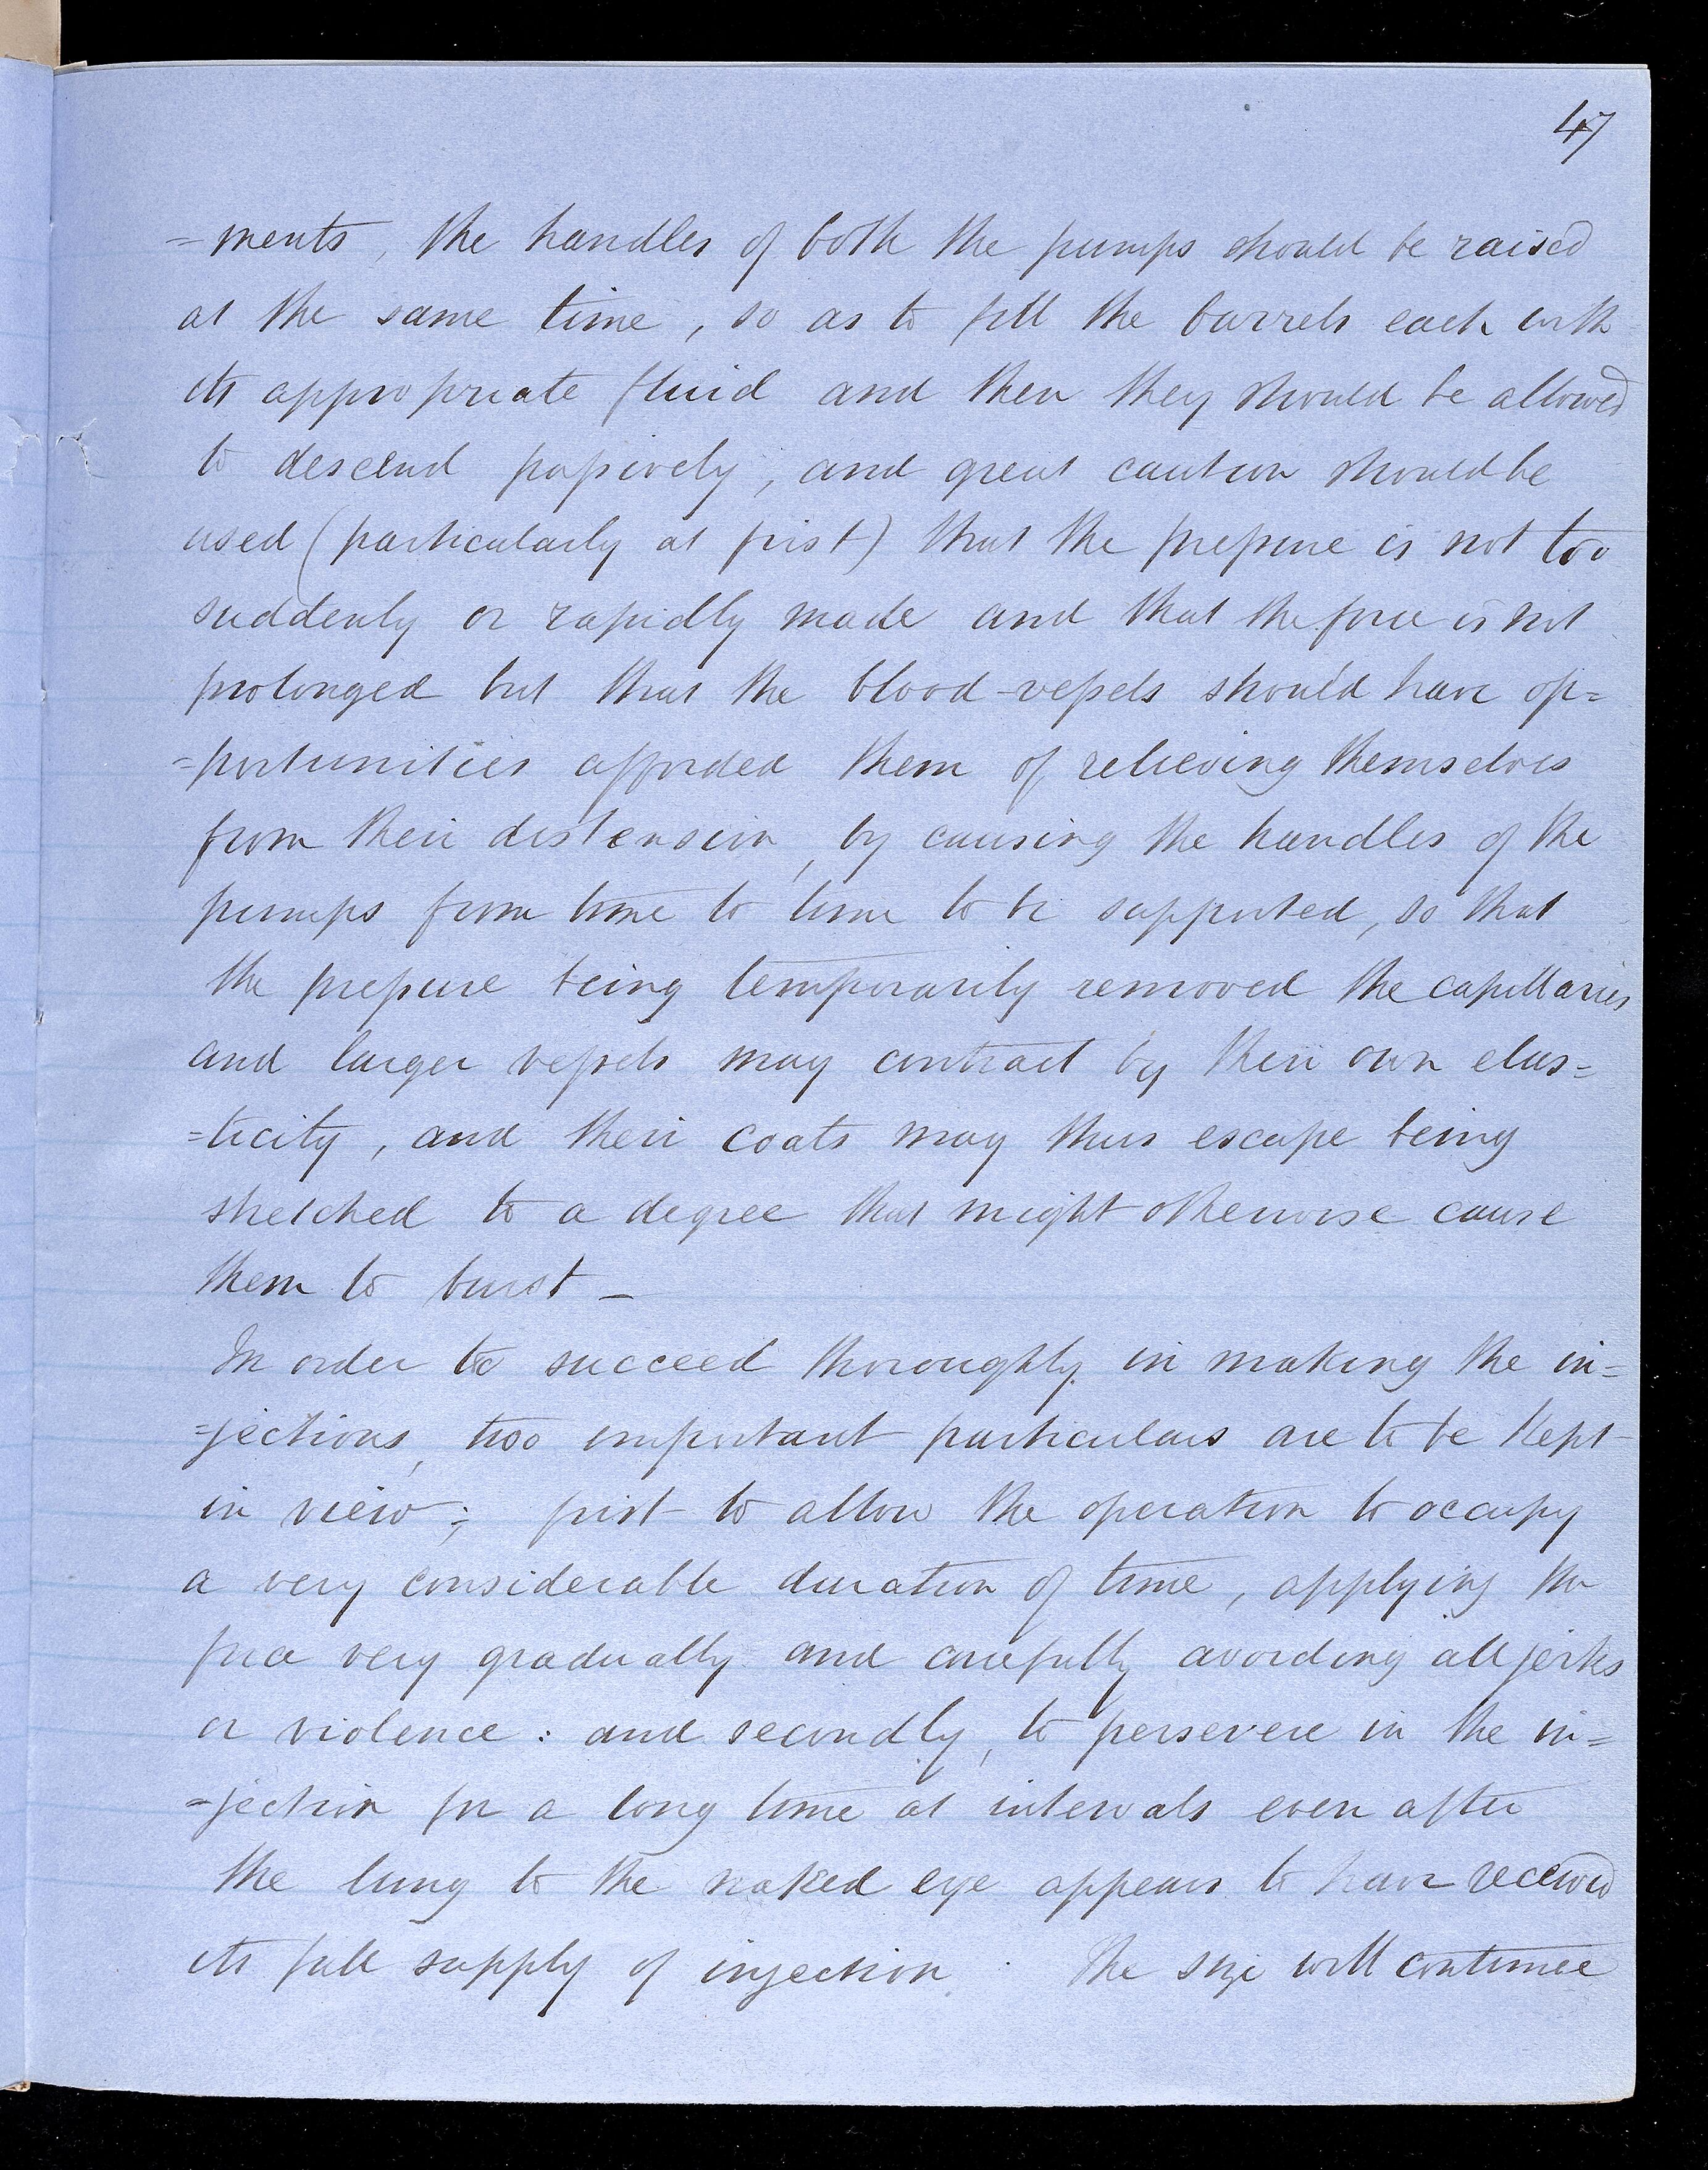 47
=ments, the handles of both the pumps should be raised
at the same time, so as to fill the barrels each with
its appropriate fluid and then they should be allowed
to descend passively; and great caution should be
used (particularly at first) that the pressure is not too
suddenly or rapidly made and that the force is not
prolonged but that the blood-vessels should have op=
=portunities afforded them of relieving themselves
from their distension, by causing the handles of the
pumps from time to time to be supported, so that
the pressure being temporarily removed the capillaries
and larger vessels may contract by their own elas=
=ticity, and their coats may thus escape being
stretched to a degree that might otherwise cause
them to burst –
In order to succeed thoroughly in making the in=
=jections, two important particulars are to be kept
in view; first to allow the operation to occupy
a very considerable duration of time, applying the
force very gradually and carefully avoiding all jerks
or violence: and secondly, to persevere in the in=
=jection for a long time at intervals even after
the lung to the naked eye appears to have received
its full supply of injection. The size will continue